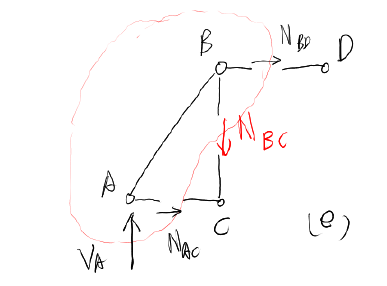 B
N_BD
D
N_BC
A
C
V_A
N_AC
(e)